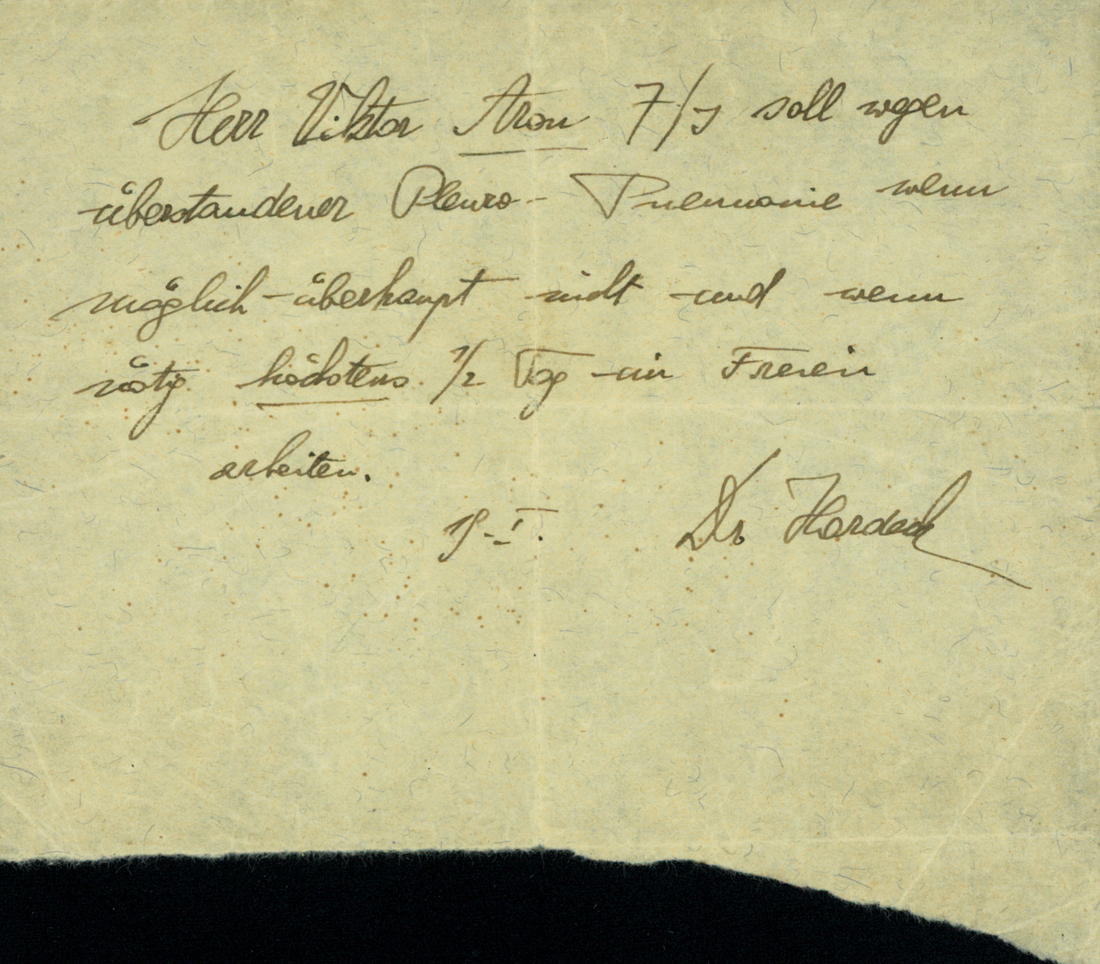 Herr Viktor Aron 7/J soll wegen
überstandener Pleuro- Pneumonie wenn
möglich überhaupt nicht und wenn
nötig höchstens 1/2 Tag im Freien
arbeiten.
Dr